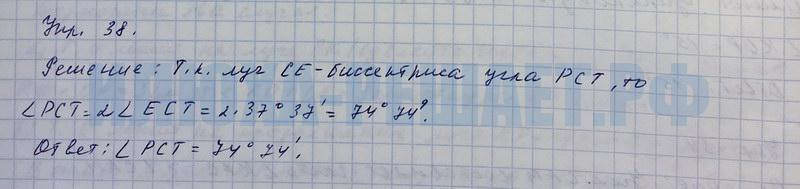 Упр. 38.
Решение: Т.к. луч CE-биссектриса угла PCT, то
∠PCT=2∠ECT=2·37°37'=74°74'.
Ответ: ∠PCT=74°74'.